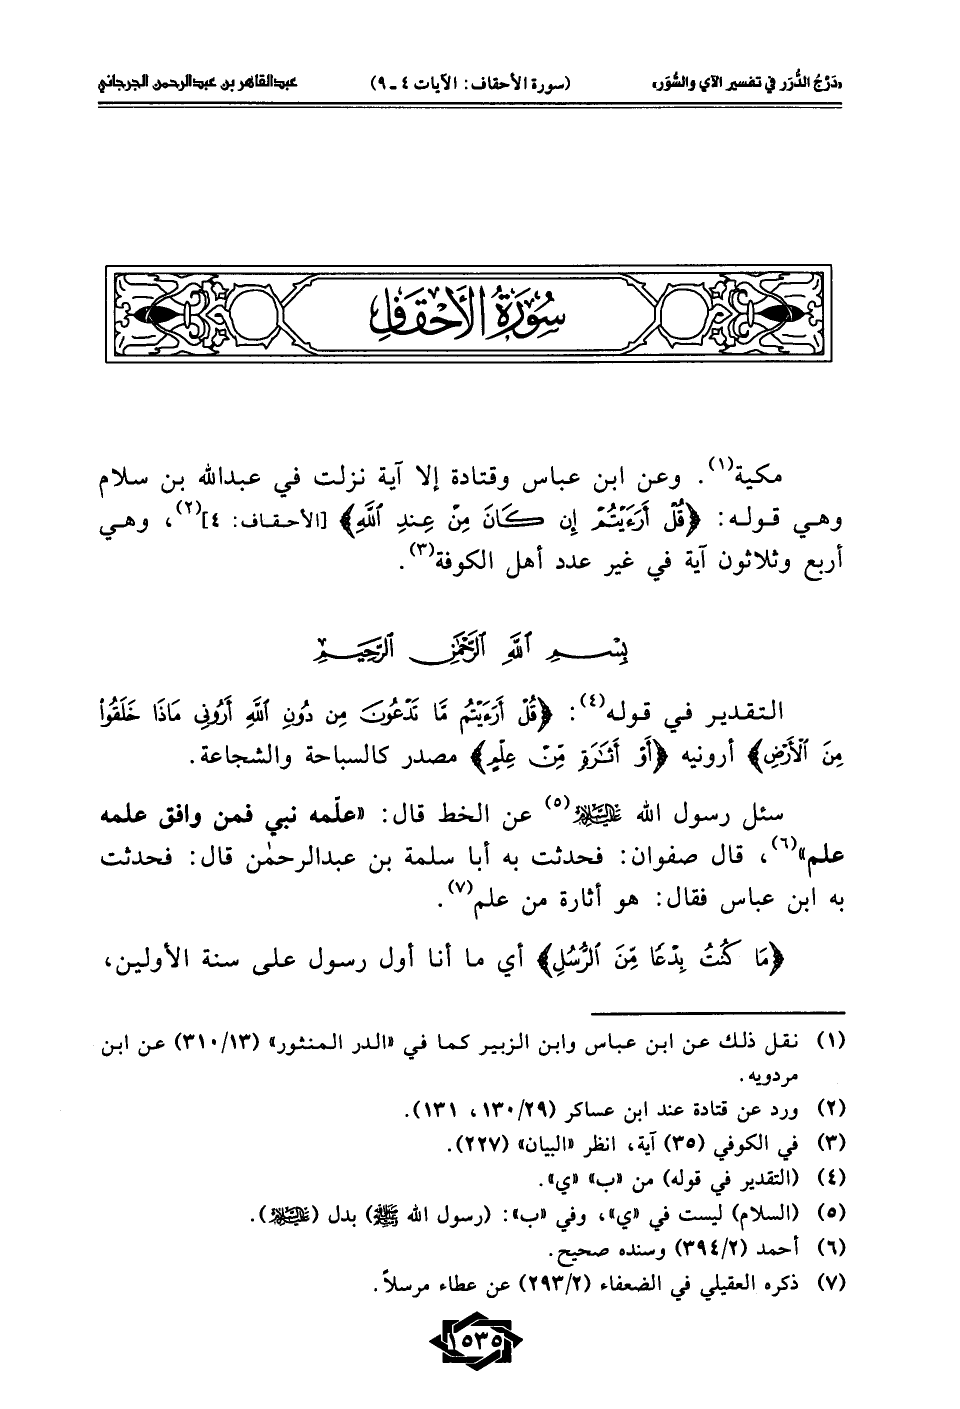 «دَرْجُ الدُّرَر في تفسير الآي والسُّوَر» (سورة الأحقاف: الآيات ٤ ـ ٩) عبدالقاهر بن عبدالرحمن الجرجاني
سُورَةُ الأَحْقَافِ
مكية(١). وعن ابن عباس وقتادة إلا آية نزلت في عبدالله بن سلام
وهي قوله: ﴿قُلْ أَرَءَيْتُمْ إِن كَانَ مِنْ عِندِ ٱللَّهِ﴾ [الأحقاف: ٤](٢)، وهي
أربع وثلاثون آية في غير عدد أهل الكوفة(٣).
بِسْمِ ٱللَّهِ ٱلرَّحْمَٰنِ ٱلرَّحِيمِ
التقدير في قوله(٤): ﴿قُلْ أَرَءَيْتُم مَّا تَدْعُونَ مِن دُونِ ٱللَّهِ أَرُونِى مَاذَا خَلَقُوا۟
مِنَ ٱلْأَرْضِ﴾ أرونيه ﴿أَوْ أَثَٰرَةٍ مِّنْ عِلْمٍ﴾ مصدر كالسباحة والشجاعة.
سئل رسول الله عليه السلام(٥) عن الخط قال: «علّمه نبي فمن وافق علمه
علم»(٦)، قال صفوان: فحدثت به أبا سلمة بن عبدالرحمٰن قال: فحدثت
به ابن عباس فقال: هو أثارة من علم(٧).
﴿مَا كُنتُ بِدْعًا مِّنَ ٱلرُّسُلِ﴾ أي ما أنا أول رسول على سنة الأولين،
(١) نقل ذلك عن ابن عباس وابن الزبير كما في «الدر المنثور» (٣١٠/١٣) عن ابن
مردويه.
(٢) ورد عن قتادة عند ابن عساكر (١٣٠/٢٩، ١٣١).
(٣) في الكوفي (٣٥) آية، انظر «البيان» (٢٢٧).
(٤) (التقدير في قوله) من «ب» «ي».
(٥) (السلام) ليست في «ي»، وفي «ب»: (رسول الله ﷺ) بدل (عليه السلام).
(٦) أحمد (٣٩٤/٢) وسنده صحيح.
(٧) ذكره العقيلي في الضعفاء (٢٩٣/٢) عن عطاء مرسلاً.
١٥٣٥